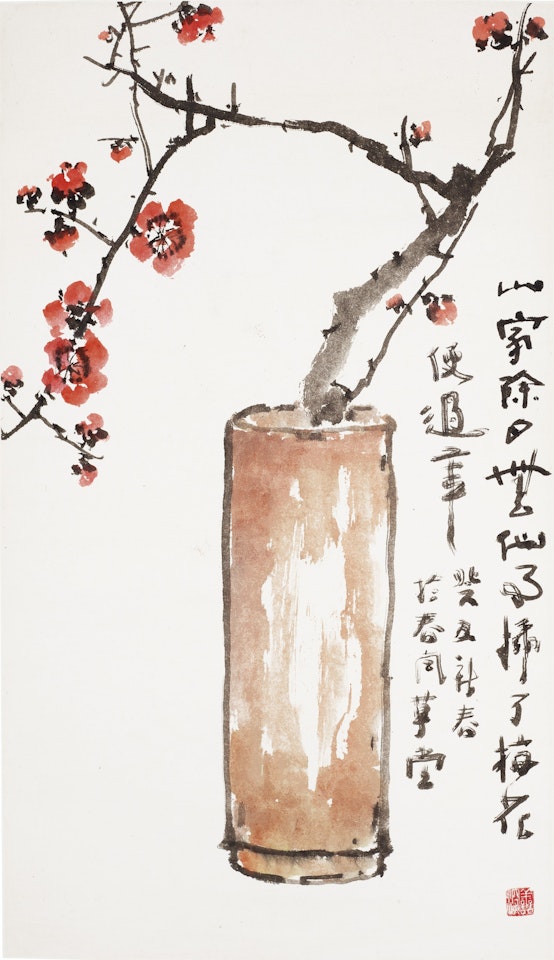 山家除夕無他事插了梅花
便過年
癸丑新春
於春風草堂